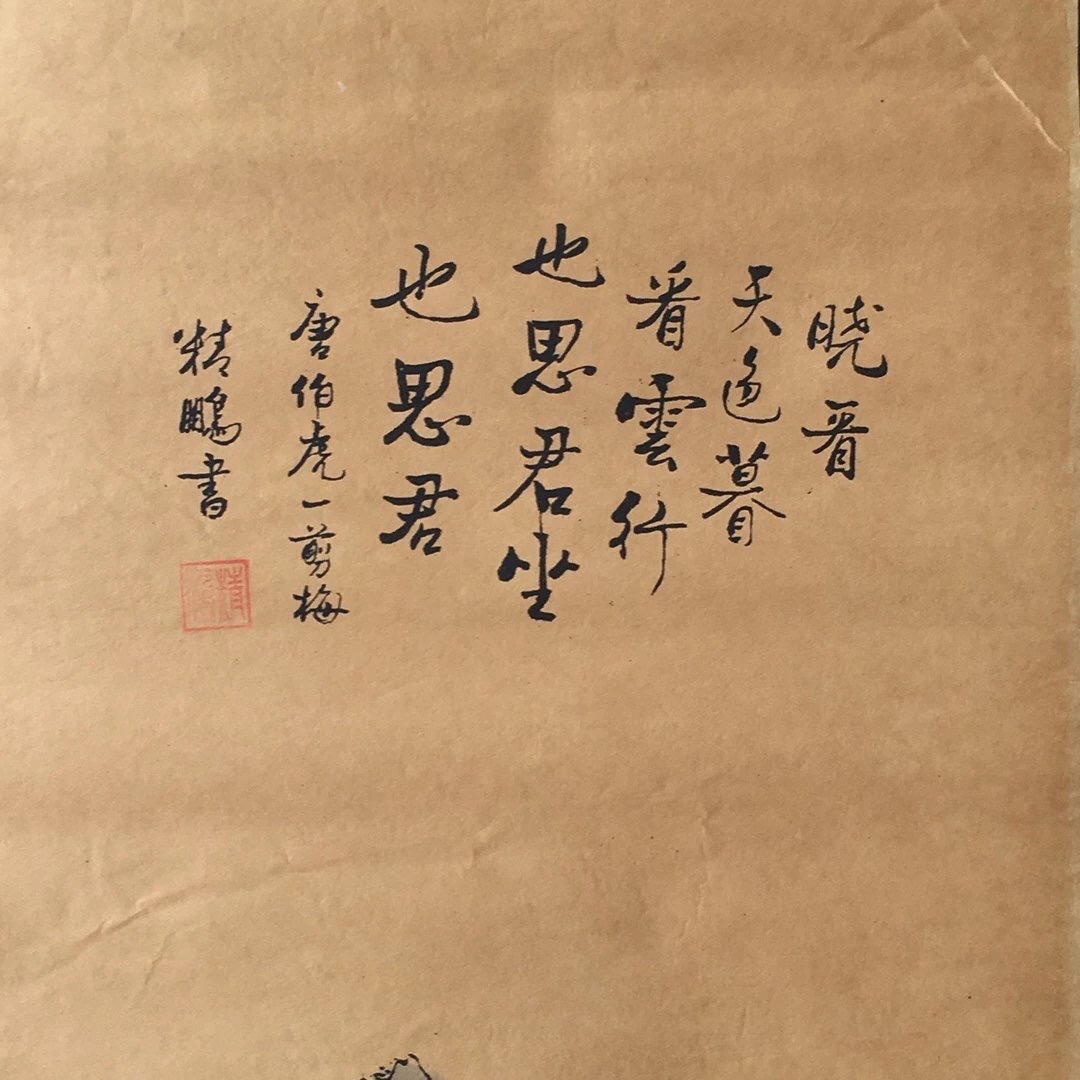 晓看
天色暮
看雲行
也思君坐
也思君
唐伯虎一剪梅
精鹏書